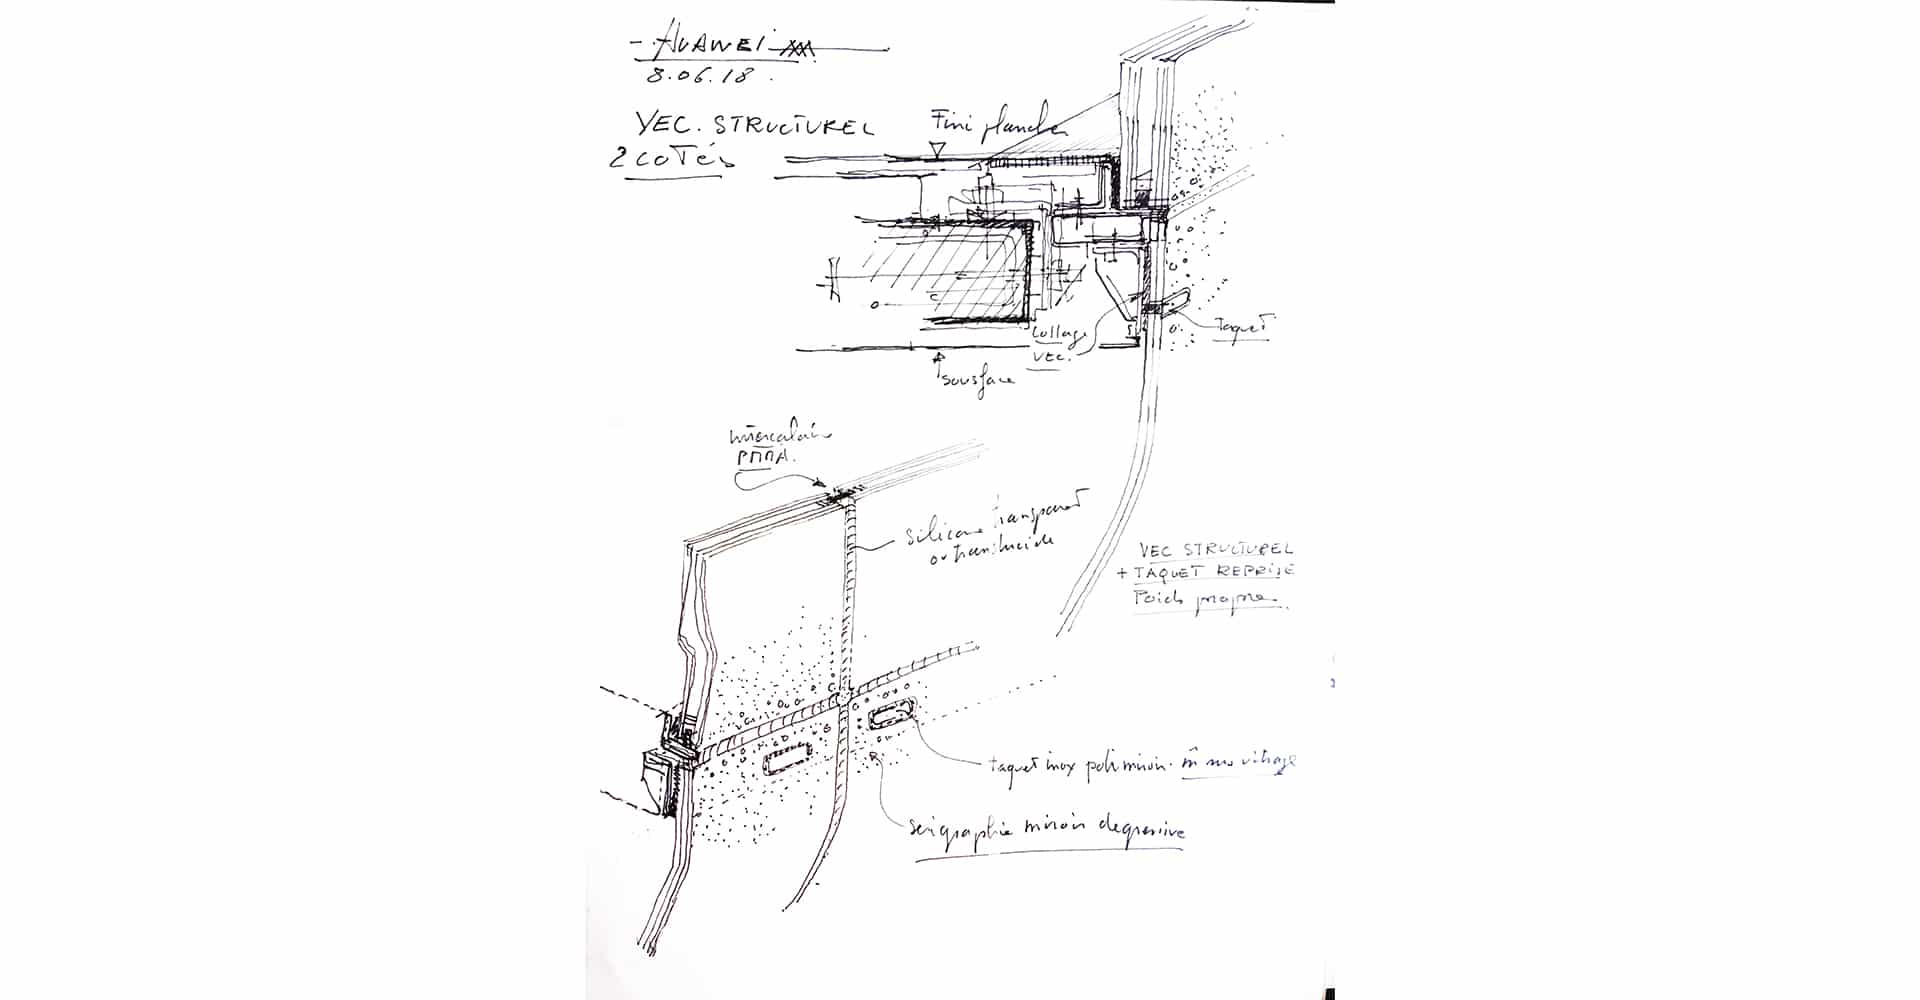 - HUAWEI
8.06.18.
VEC. STRUCTUREL
2 COTÉS
Fini plancher
Taquet
Collage
VEC.
sousface
Intercalaire
PMMA.
Silicone transparent
ou translucide
VEC STRUCTUREL
+ TAQUET REPRISE
Poids propre
taquet inox poli miroir. vitrage
Serigraphie miroir degressive